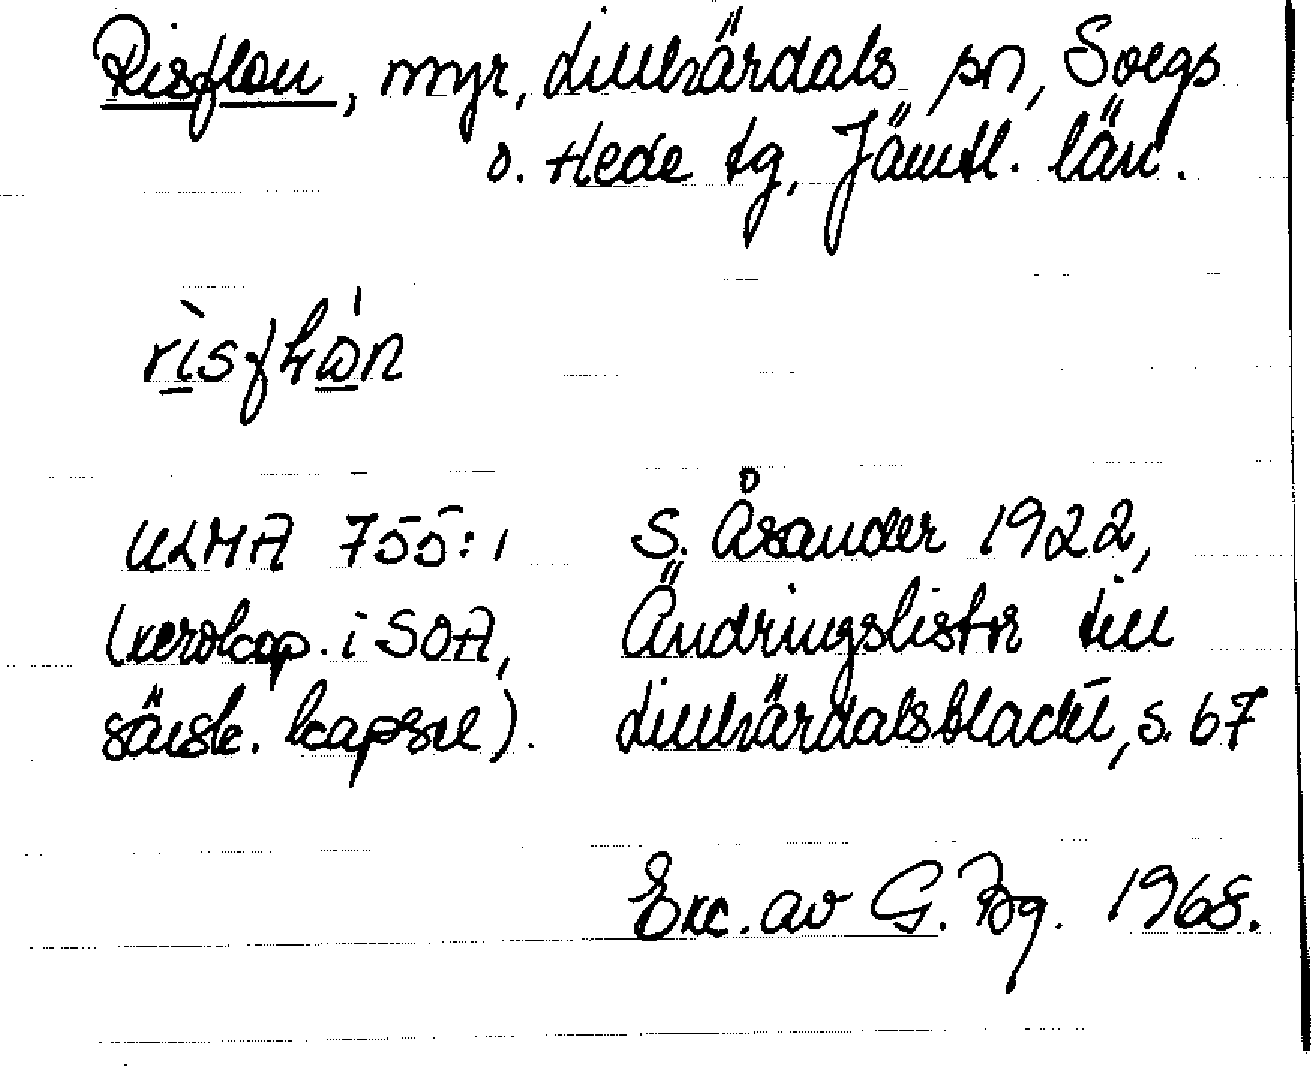 Risflon, myr, Lillhärdals sn, Svegs
o. Hede tg, Jämtl. län.
ULMA 755:1 S. Åsander 1922,
(xerokop. i SOA, Ändringslistor till
särsk. kapsel). Lillhärdalsbladet, s. 67
Exc. av G. Bg. 1968.